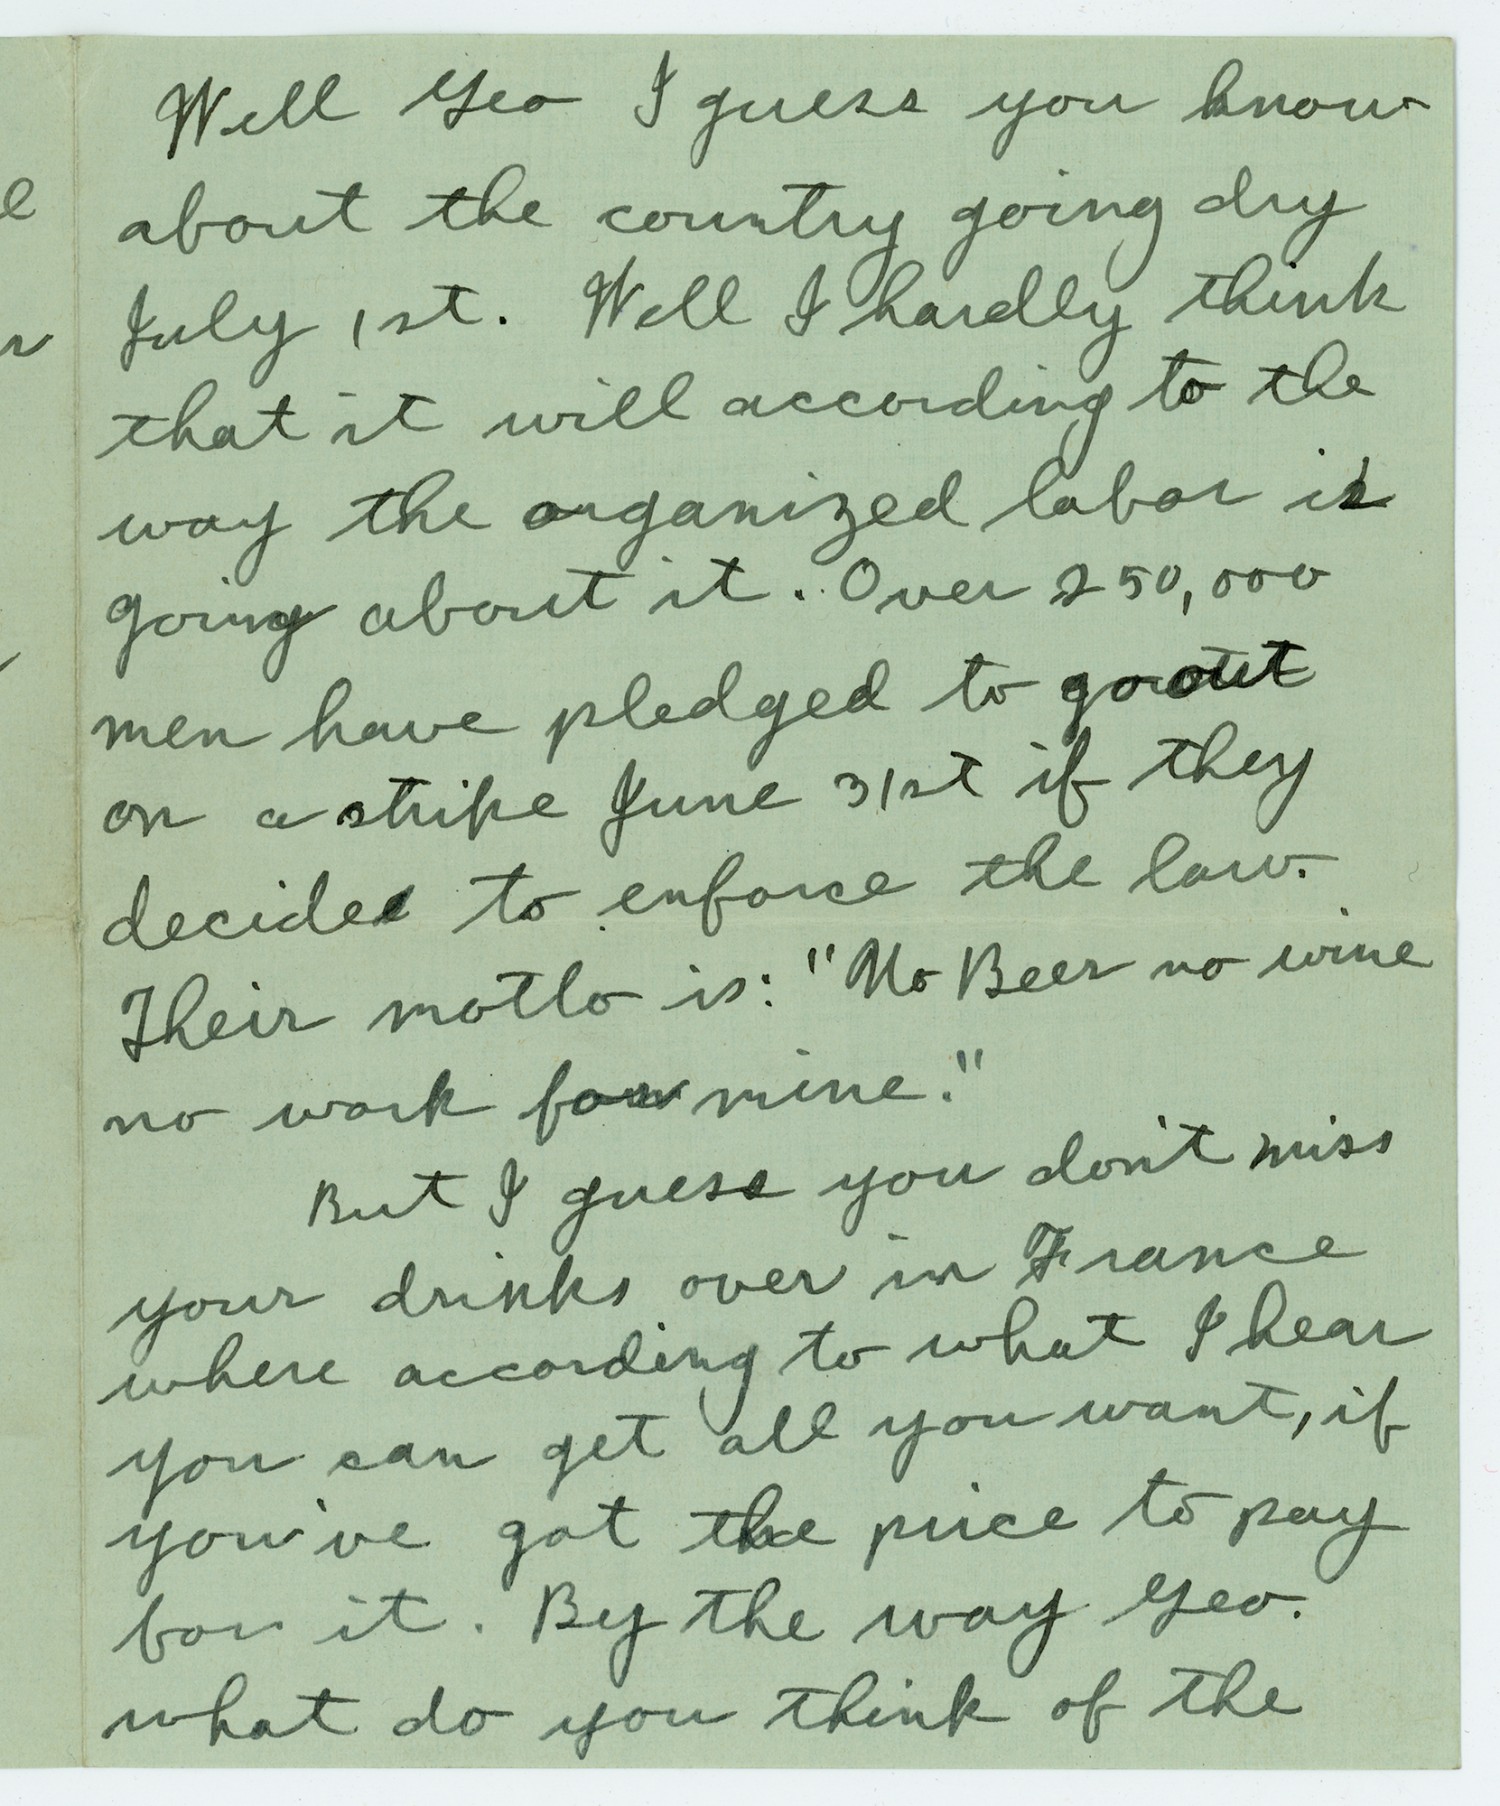 Well Geo I guess you know
about the country going dry
July 1st. Well I hardly think
that it will according to the
way the organized labor is
going about it. Over 250,000
men have pledged to go out
on a strike June 31st if they
decide to enforce the law.
Their motto is: "No Beer no wine
no work for mine."
But I guess you don't miss
your drinks over in France
where according to what I hear
you can get all you want, if
you've got the price to pay
for it. By the way Geo.
what do you think of the